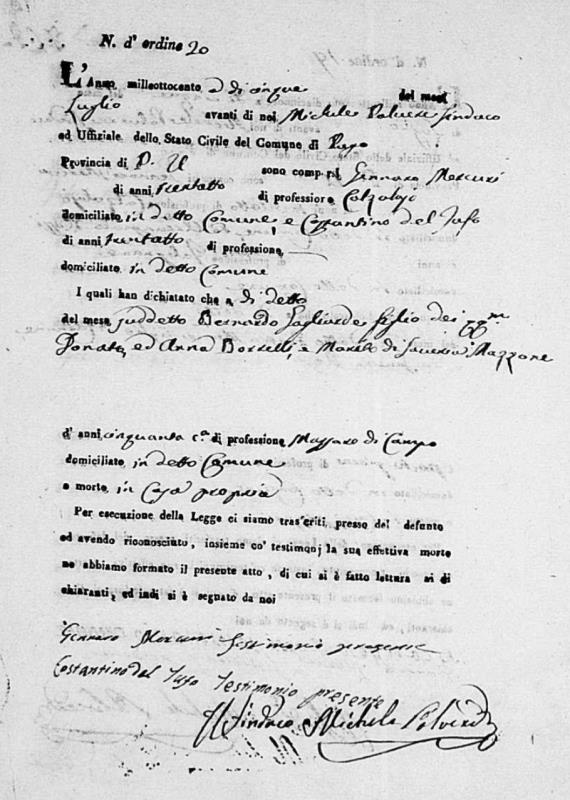 N. d' ordine 20
L'Anno milleottocento a di cinque del mese
Luglio avanti di noi Michele Polverе Sindaco
ed Uffiziale dello Stato Civile del Comune di
Provincia di P. U sono comp.ri Gennaro Mercuri
di anni trentatto di professione Calzolajo
domiciliato in detto Comune, e Costantino del Tufo
di anni trentatto di professione
domiciliato in detto Comune
I quali han dichiatato che a di detto
del mese suddetto Bernardo figlio dei qm
Donato, ed Anna Borrelli, e Marito di Saveria Mazzone
d' anni cinquanta c.a di professione Massaro di Campo
domiciliato in detto Comune
e morto in Casa propria
Per esecuzione della Legge ci siamo trasferiti, presso del defunto
ed avendo riconosciuto, insieme co' testimonj la sua effettiva morte
ne abbiamo formato il presente atto, di cui si è fatto lettura ai di
chiaranti, ed indi si è segnato da noi
Gennaro Mercuri testimonio presente
Costantino del Tufo Testimonio presente
Il Sindaco Michele